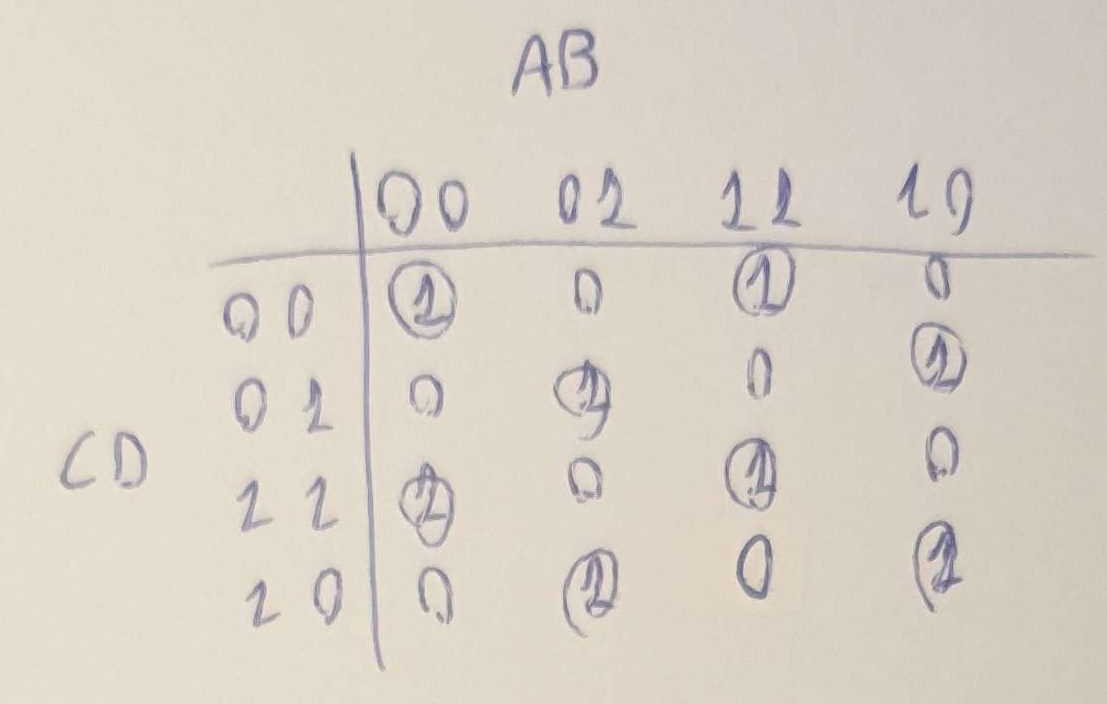 AB
00 01 11 10
00 1 0 1 0
01 0 1 0 1
CD
11 1 0 1 0
10 0 1 0 1